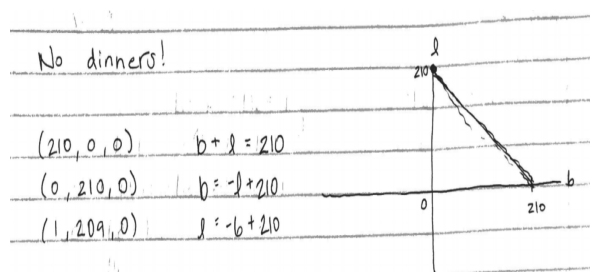 No dinners!
(210, 0, 0) b + l = 210
(0, 210, 0) b = -l + 210
(1, 209, 0) l = -b + 210
l
210
b
0
210